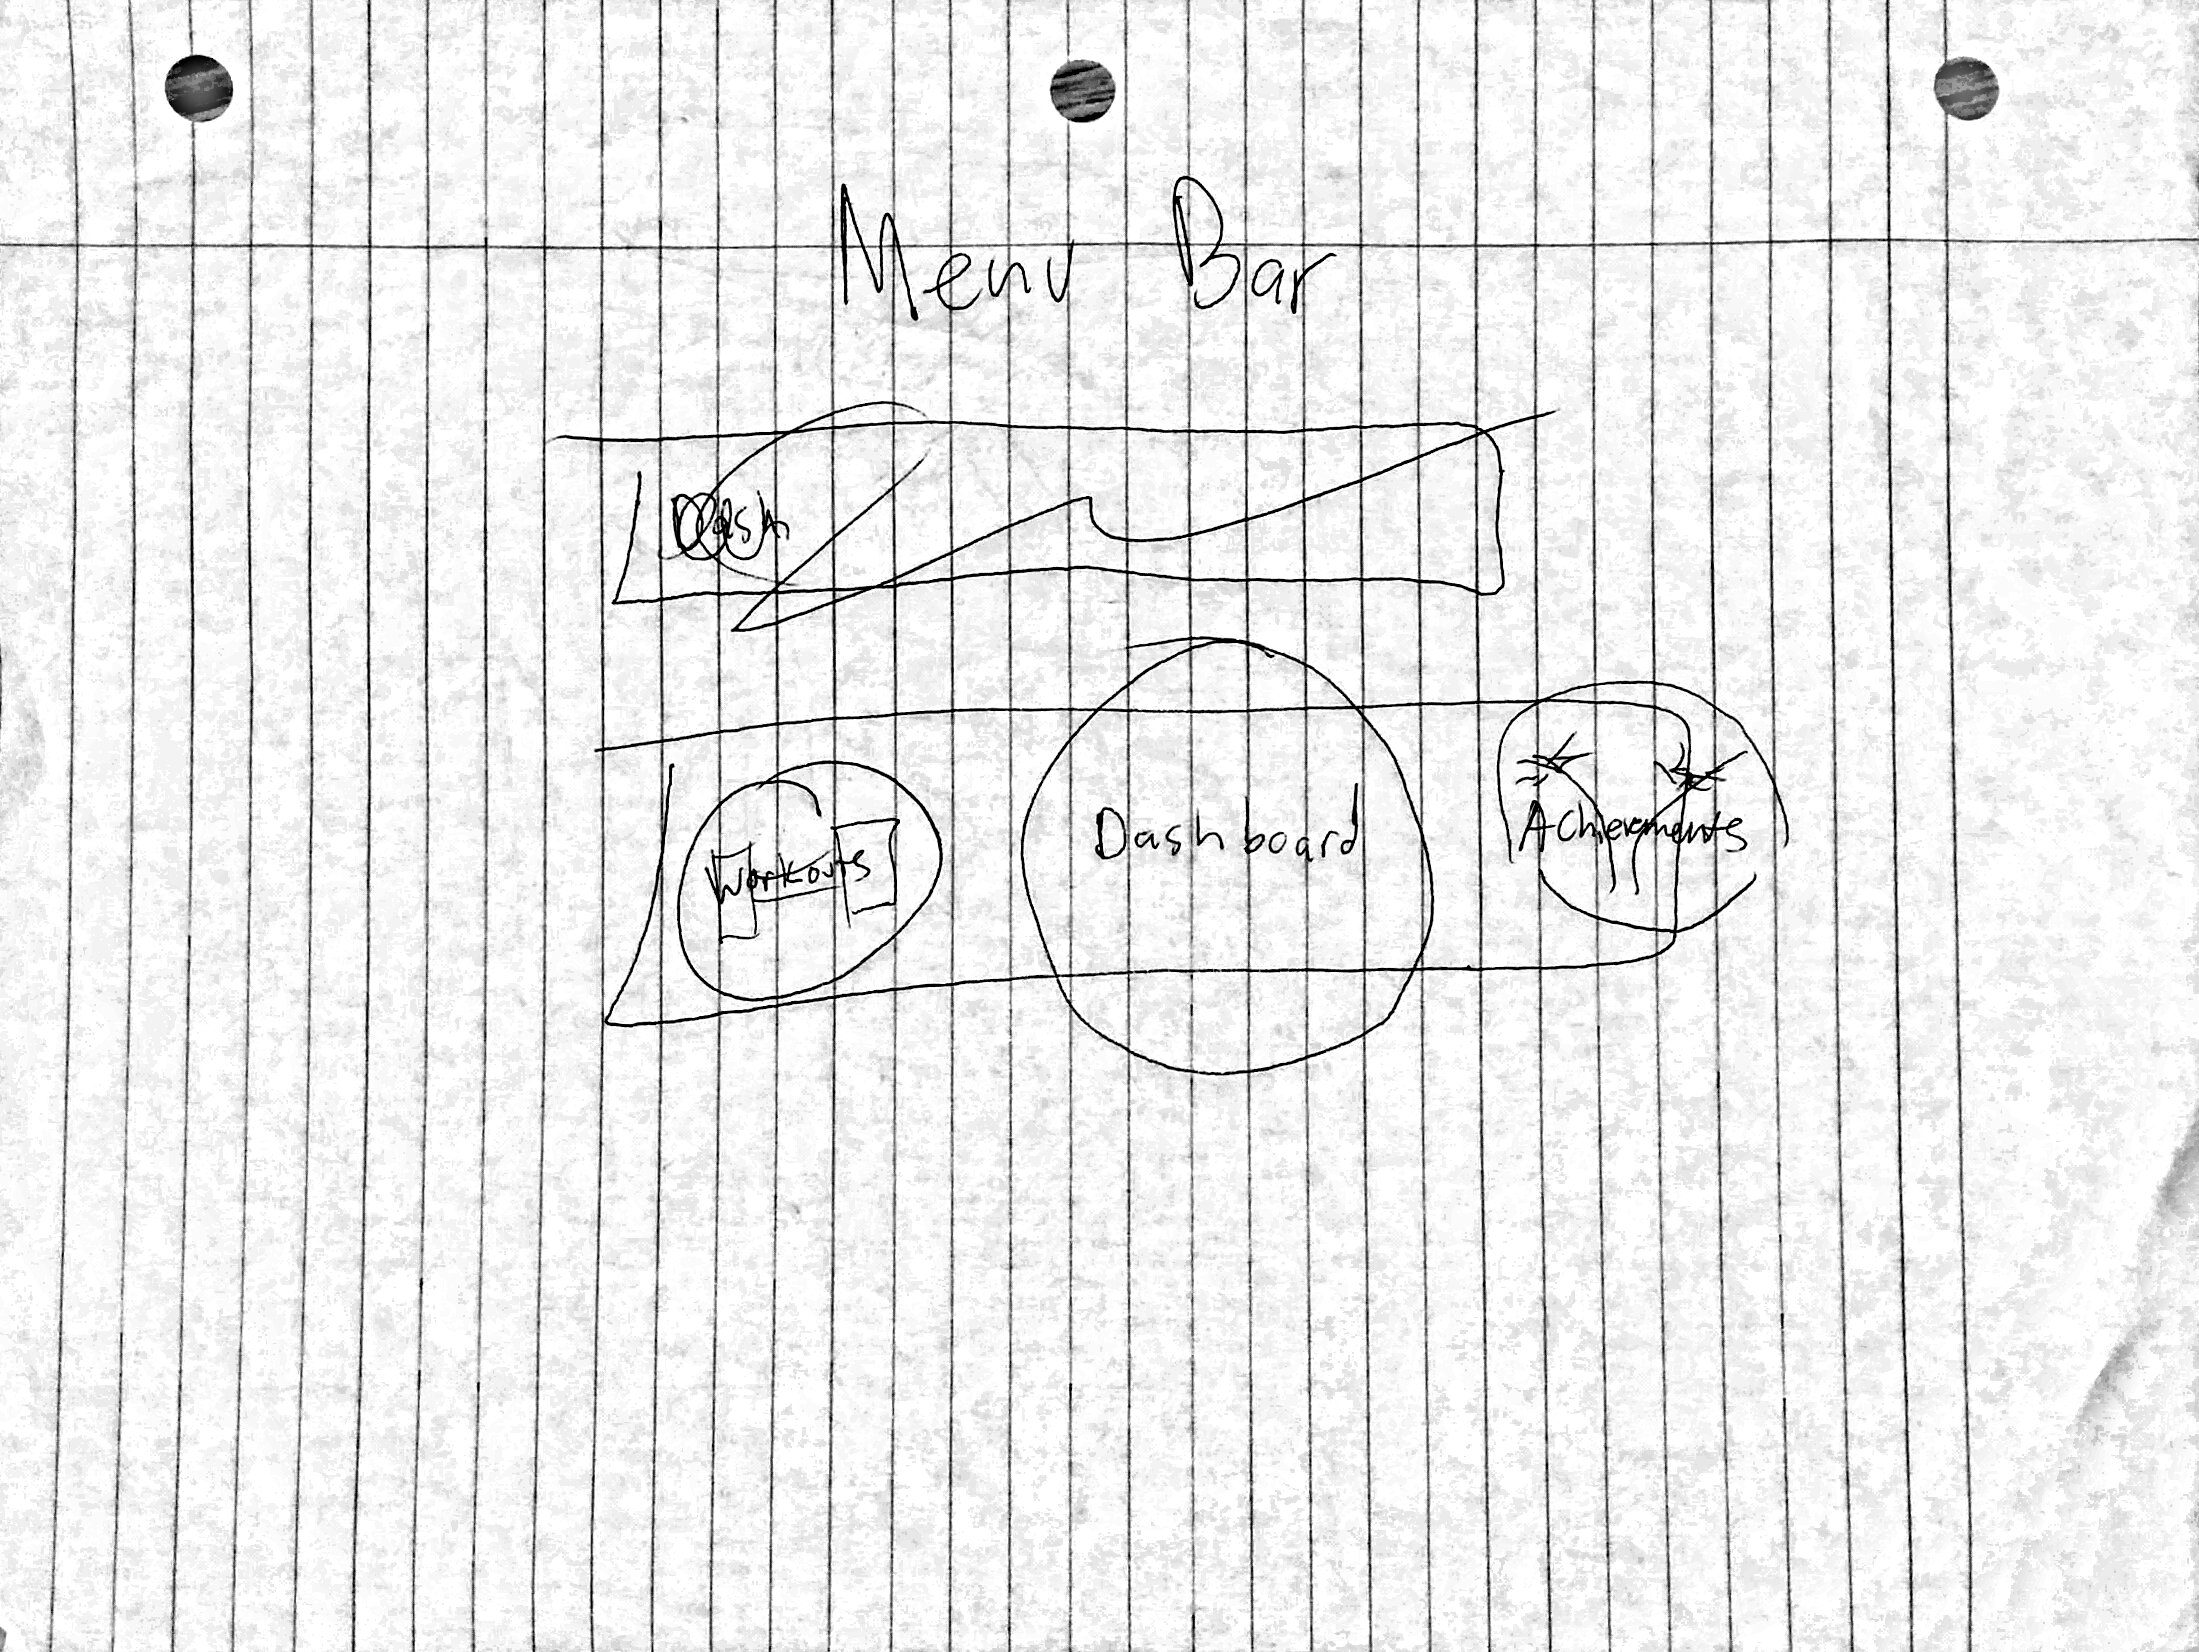 Menu Bar
Dash
Workouts Dashboard Achievements